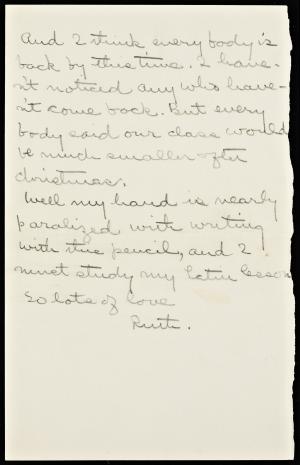 And I think every body is
back by this time. I have-
n't noticed any who have-
n't come back. But every
body said our class would
be much smaller after
Christmas.
Well my hand is nearly
paralized with writing
with this pencil, and I
must study my latin lesson
So lots of love
Ruth.